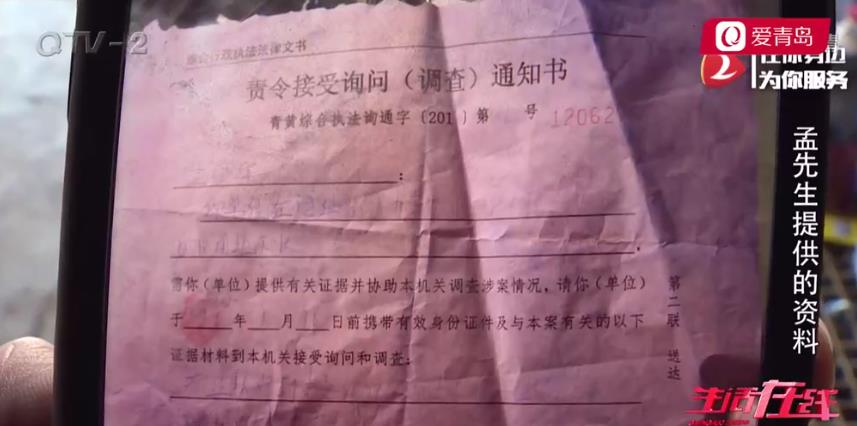 QTV-2
爱青岛
在你身边
为你服务
综合行政执法法律文书
责令接受询问(调查)通知书
青黄综合执法询通字〔201 〕第 号 12062
:
需你(单位)提供有关证据并协助本机关调查涉案情况,请你(单位)
于 年 月 日前携带有效身份证件及与本案有关的以下
证据材料到本机关接受询问和调查:
第二联 送达
孟先生提供的资料
生活在线